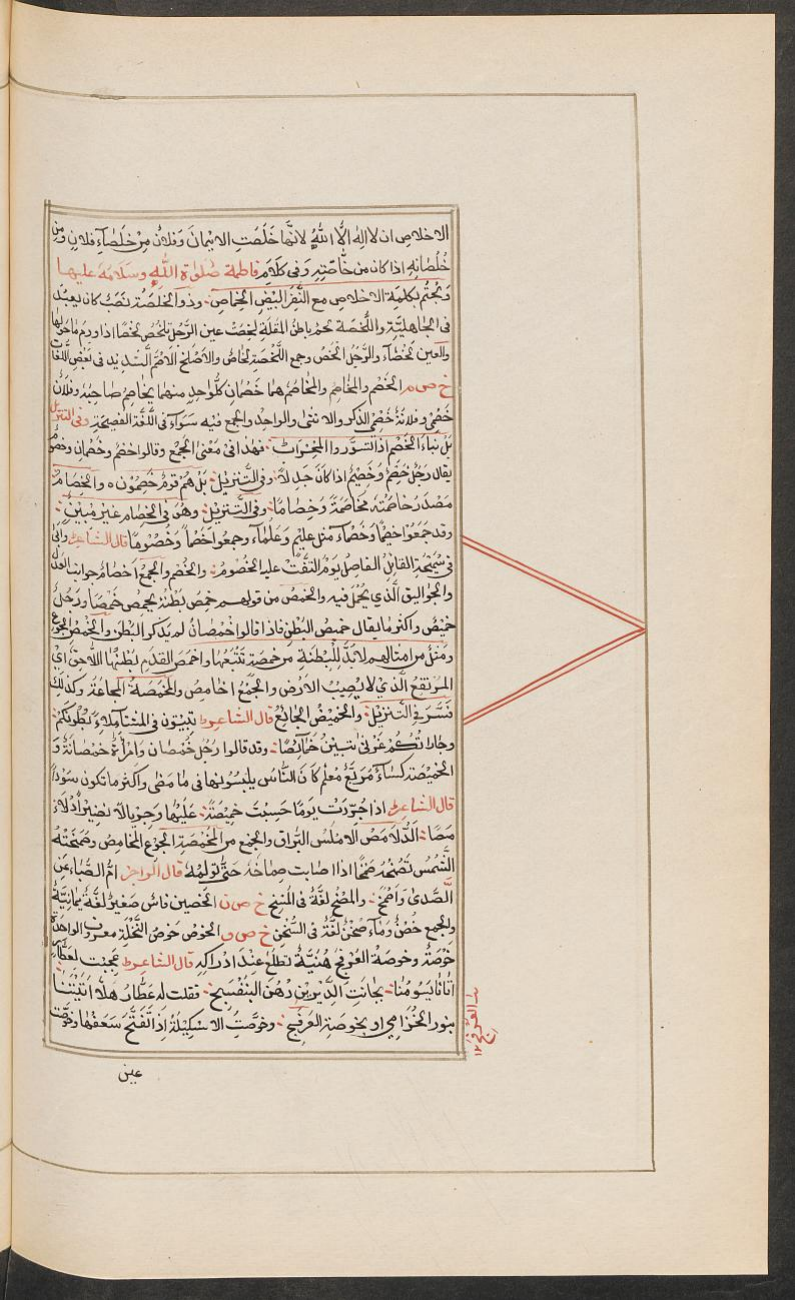 الاخلاص ان لا اله الا الله لانها خلصت الايمان وفلان من خلصاء فلان ومن
خلصانه اذا كان من خاصته وفى كلام فاطمة صلواة الله وسلامه عليها
وبحتم بكلمة الاخلاص مع النفر البيض الخماص وذو الخلصة نصب كان يعبد
فى الجاهلية واللخصة لحم باطن المقلة لخصت عين الرجل تلخص لخصا اذا ورم ما حولها
والعين لخصاء والرجل الخص وجمع اللخصة لخاص والاصلخ الاصم الشديد فى بعض اللغات
خ ص م الخصم والمخاصم والمخاصم هما خصمان كل واحد منهما يخاصم صاحبه وفلان
خصمى وفلانة خصمى الذكر والانثى والواحد والجمع فيه سواء فى اللغة الفصيحة وفى التنزيل
بل نباء الخصم اذ تسوروا المحراب فهذا فى معنى الجمع وقالوا خصم وخصمان وخصوم
يقال رجل خصم وخصيم اذا كان جدلا وفى التنزيل بل هم قوم خصمون ه والخصام
مصدر خاصمته مخاصمة وخصاما وفى التنزيل وهو فى الخصام غير مبين
وقد جمعوا خصيما وخصماء مثل عليم وعلماء وجمعوا خصما وخصوما قال الشاعر وابى
فى سميحة القايل الفاصل يوم التفت عليه الخصوم والخصم والجمع اخصام جوانب العدل
والجواليق الذي يحمل فيه والخمص من قولهم خمص بطنه يخمص خمصا ورجل
خميص واكثر ما يقال خميص البطن فاذا قالوا خمصان لم يذكروا البطن والخمص الجوع
ومثل من امثالهم لا بد للبطنة من خمصة تتبعها واخمص القدم بطنها اللاحق اي
المرتفع الذي لا يصيب الارض والجمع اخامص والمخمصة المجاعة وكذلك
فسر فى التنزيل والخميص الجائع قال الشاعر تبيتون فى المشتا ملاء بطونكم
وجاراتكم غرثى يبتن خمائصا وقد قالوا رجل خمصان وامرأة خمصانة و
الخميصة كساء مربع معلم كان الناس يلبسونها فى ما مضى واكثر ما تكون سودا
قال الشاعر اذا جردت يوما حسبت خميصة عليها وجريال النضير الدلا
مصا الدلامص الاملس البراق والجمع من المخمصة الجوع المخامص وصمخته
الشمس تصمخه صمخا اذا اصابت صماخه حتى تولمه قال الراجز ام الصباء عن
الصدى واصمخ والمصخ لغة فى المسخ خ ص ن الخصين فاس صغير لغة يمانية
والجمع خصن وماء صخن لغة فى السخن خ ص و الخوص خوص النخلة معروف الواحدة
خوصة وخوصة العرفج هنية تطلع عند ادراكه قال الشاعر عجبت لعطار
اتانا يسومنا بجانت الديرين دهن البنفسج فقلت له عطار هلا اتيتنا
بنور الخزامى او بخوصة العرفج وخوصت الاسكيلة اذا تفتح سعفها وخوصت
عين